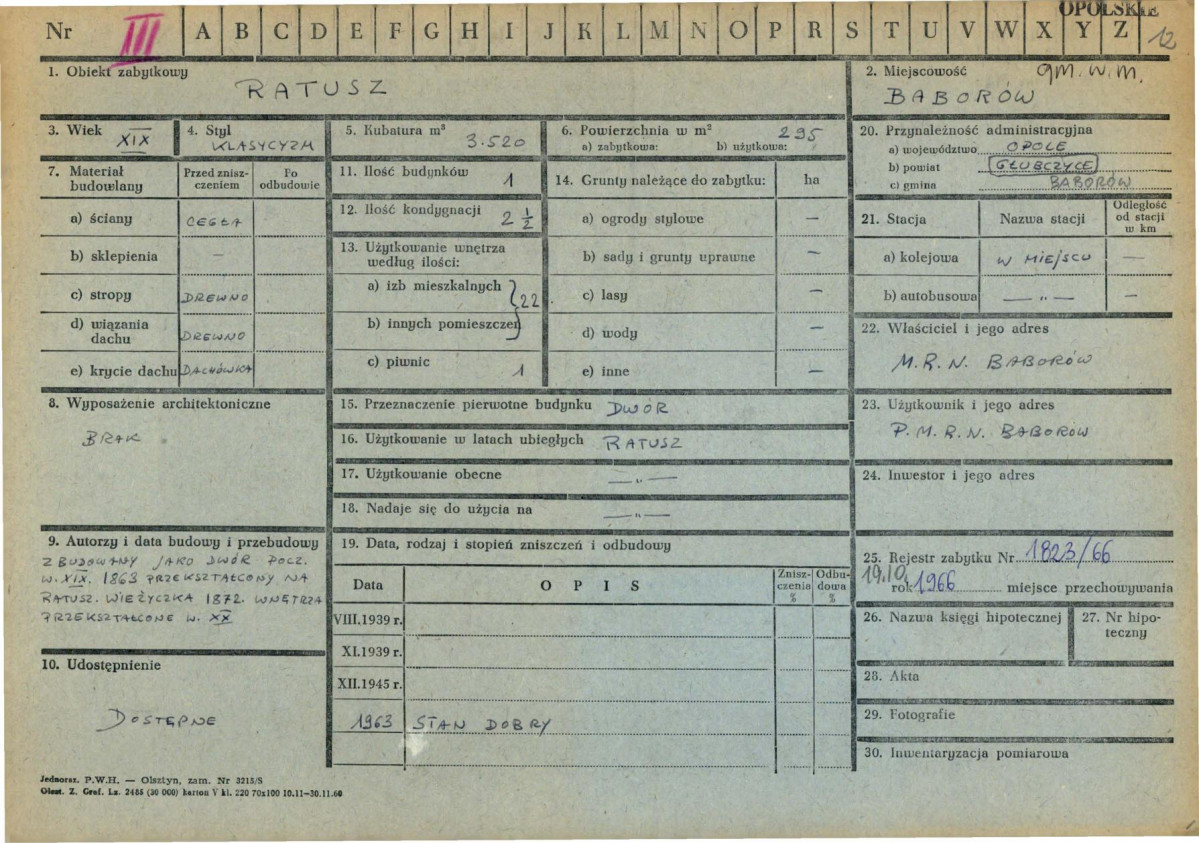 OPOLSKIE
Nr III A B C D E F G H I J K L M N O P R S T U V W X Y Z 12
1. Obiekt zabytkowy
RATUSZ
2. Miejscowość gm. w. m.
BABORÓW
3. Wiek
XIX
4. Styl
KLASYCYZM
5. Kubatura m³
3.520
6. Powierzchnia w m² 295
a) zabytkowa: b) użytkowa:
20. Przynależność administracyjna
a) województwo OPOLE
b) powiat GŁUBCZYCE
c) gmina BABORÓW
7. Materiał budowlany
Przed zniszczeniem
Po odbudowie
a) ściany CEGŁA
b) sklepienia —
c) stropy DREWNO
d) wiązania dachu DREWNO
e) krycie dachu DACHÓWKA
11. Ilość budynków 1
12. Ilość kondygnacji 2 1/2
13. Użytkowanie wnętrza według ilości:
a) izb mieszkalnych
22
b) innych pomieszczeń
c) piwnic 1
14. Grunty należące do zabytku: ha
a) ogrody stylowe —
b) sady i grunty uprawne —
c) lasy —
d) wody —
e) inne —
21. Stacja
Nazwa stacji
Odległość od stacji w km
a) kolejowa W MIEJSCU —
b) autobusowa — „ — —
22. Właściciel i jego adres
M.R.N. BABORÓW
8. Wyposażenie architektoniczne
BRAK
15. Przeznaczenie pierwotne budynku DWÓR
16. Użytkowanie w latach ubiegłych RATUSZ
17. Użytkowanie obecne — „ —
18. Nadaje się do użycia na — „ —
23. Użytkownik i jego adres
P.M.R.N. BABORÓW
24. Inwestor i jego adres
9. Autorzy i data budowy i przebudowy
ZBUDOWANY JAKO DWÓR POCZ.
W. XIX. 1863 PRZEKSZTAŁCONY NA
RATUSZ. WIEŻYCZKA 1872. WNĘTRZA
PRZEKSZTAŁCONE W. XX
10. Udostępnienie
DOSTĘPNE
19. Data, rodzaj i stopień zniszczeń i odbudowy
Data OPIS Zniszczenia % Odbudowa %
VIII.1939 r.
XI.1939 r.
XII.1945 r.
1963 STAN DOBRY
25. Rejestr zabytku Nr 1823/66
19.10. rok 1966 miejsce przechowywania
26. Nazwa księgi hipotecznej
27. Nr hipoteczny
28. Akta
29. Fotografie
30. Inwentaryzacja pomiarowa
Jednoraz. P.W.H. — Olsztyn, zam. Nr 3215/S
Olszt. Z. Graf. Lz. 2485 (30 000) karton V kl. 220 70x100 10.11—30.11.60